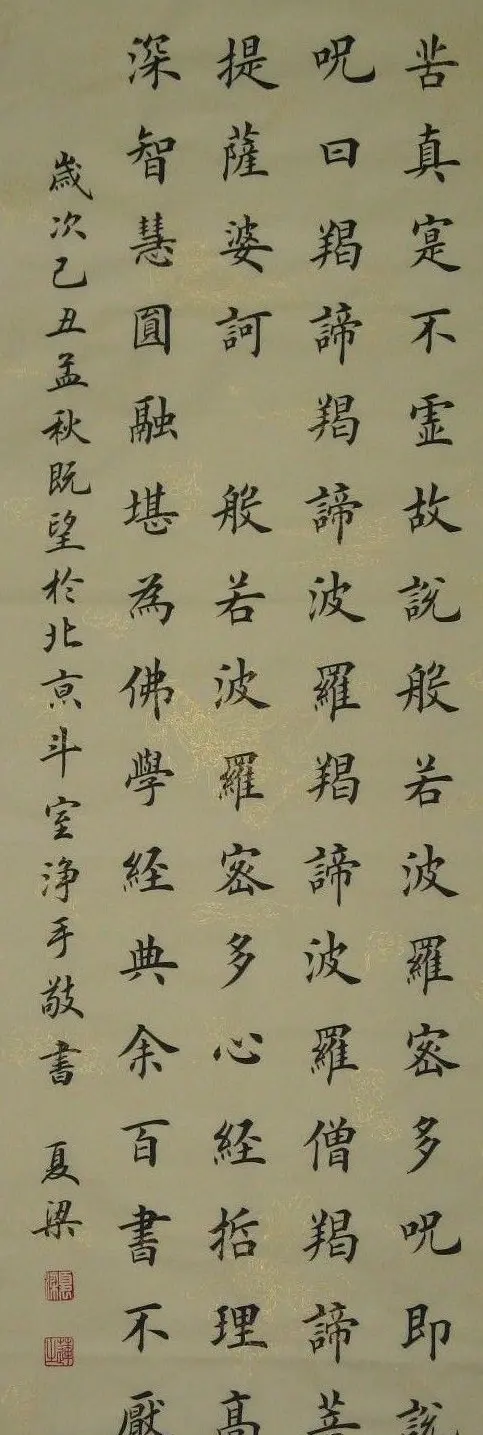 苦真寔不虛故說般若波羅密多呪即說
呪曰羯諦羯諦波羅羯諦波羅僧羯諦菩
提薩婆訶 般若波羅密多心經哲理高
深智慧圓融堪為佛學經典余百書不厭
歲次己丑孟秋既望於北京斗室淨手敬書 夏梁